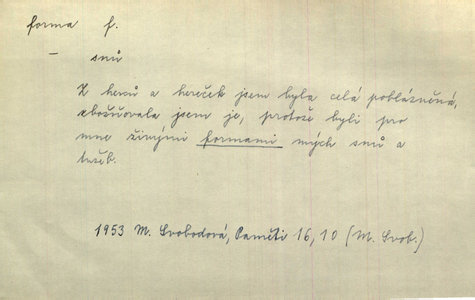 forma f.
– snů
Z herců a hereček jsem byla celá poblázněná,
zbožňovala jsem je, protože byli pro
mne živými formami mých snů a
tužeb.
1953 M. Svobodová, Paměti 16, 10 (M. Svob.)